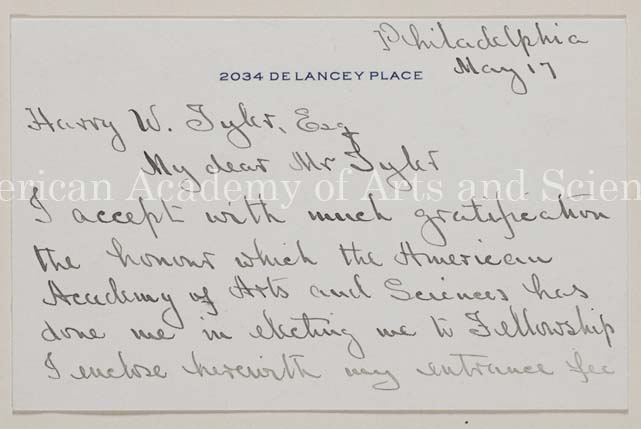 Philadelphia
May 17
2034 DE LANCEY PLACE
Harry W. Tyler, Esq
My dear Mr Tyler
American Academy of Arts and Scien
I accept with much gratification
the honour which the American
Academy of Arts and Sciences has
done me in electing me to Fellowship
I enclose herewith my entrance fee